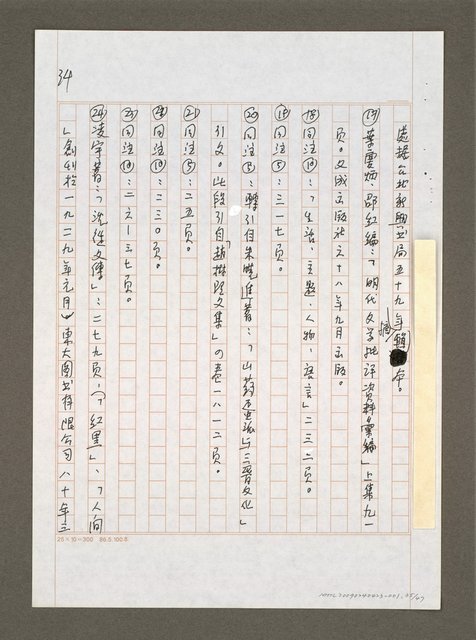 處據台北新興書局五十九年摘輯本。
⑰葉慶炳、邵紅編:「明代文學批評資料彙編」上集九一
頁。文成出版社六十八年九月出版。
⑱同注⑩:「生活、主題、人物、語言」二三二頁。
⑲同注⑤:三一七頁。
⑳同注⑤:轉引自朱曉進著:「山藥蛋派與三晉文化」
引文。此段引自「趙樹理文集」の卷一八一二頁。
㉑同注⑤:二五頁。
㉒同注⑩:二三〇頁。
㉓同注⑩:二六—三七頁。
㉔凌宇著:「沈從文傳」:二七九頁,(「紅黑」、「人間
」創刊於一九二九年元月)東大圖書有限公司八十年三
34
25×10=300 86.5.100本
NMTL20090240023-001.35/47